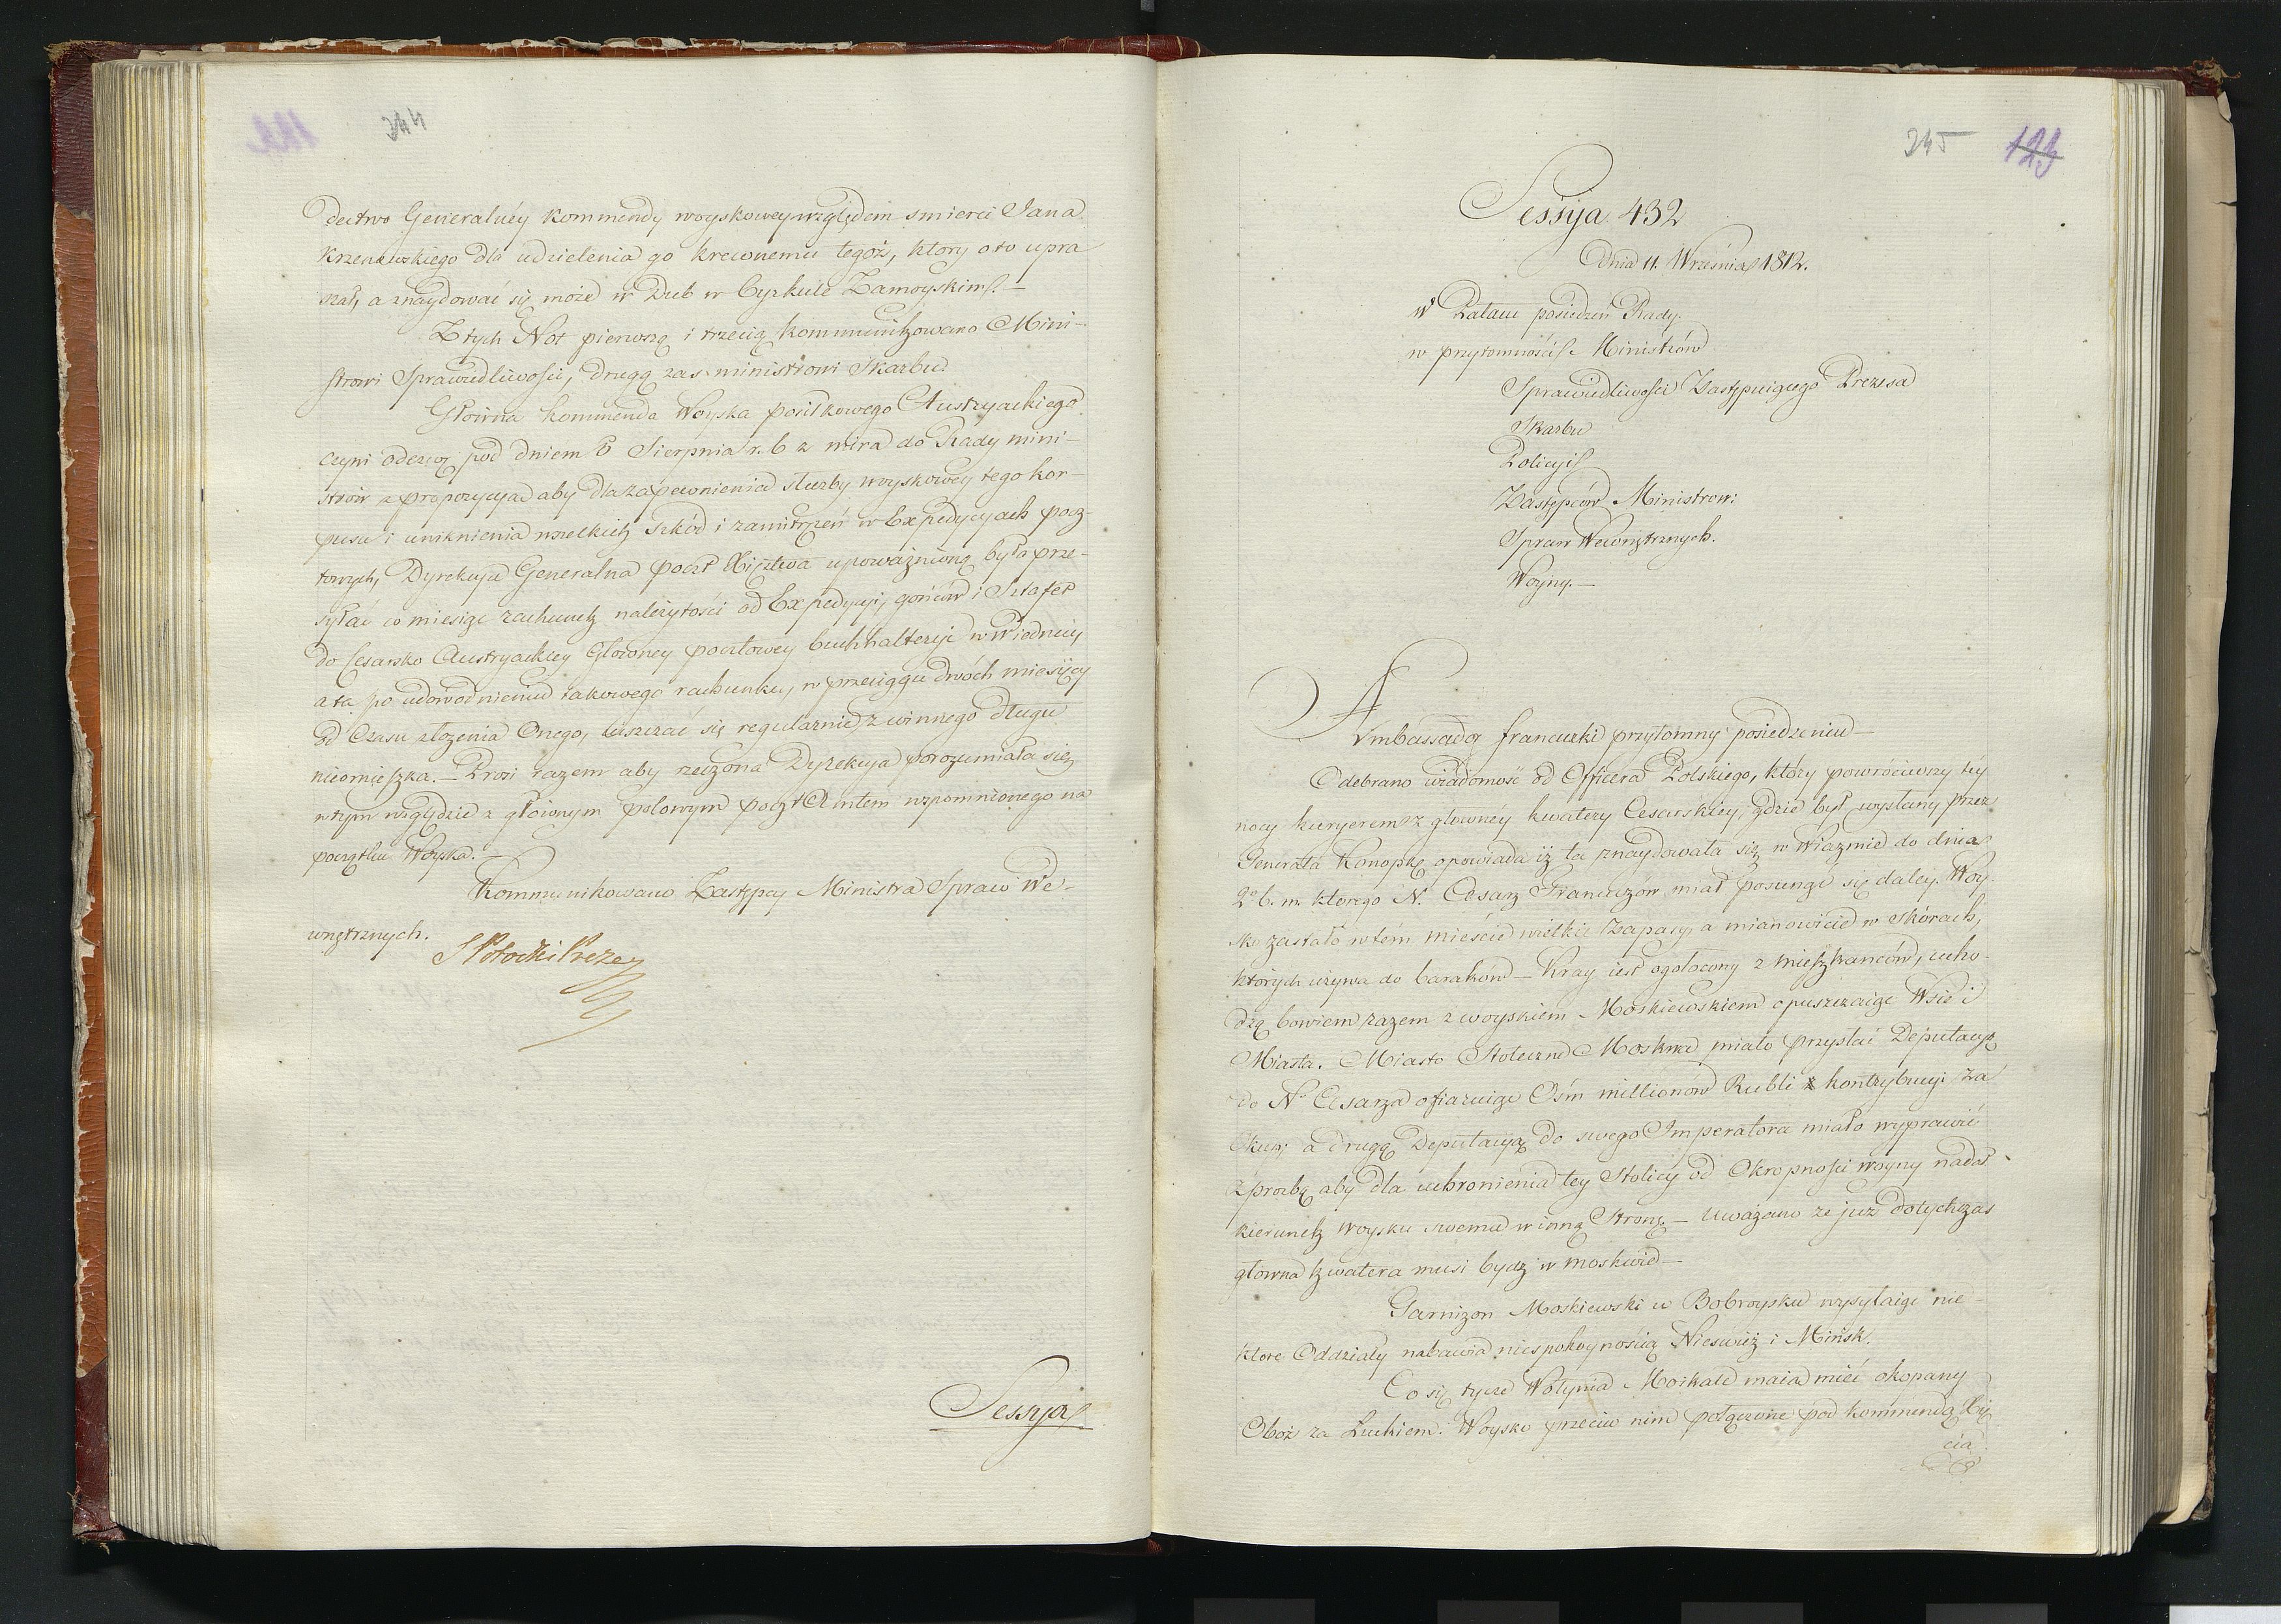 244
dectwo Generalnéy Kommendy woyskowey względem smierci Jana
Krzenewskiego dla udzielenia go krewnemu tegoż, ktory o to upra
szał, a znaydować się może w Dub w Cyrkule Zamoyskim. —
Z tych Not pierwszą i trzecią kommunikowano Mini-
strowi Sprawiedliwości, drugą zas ministrowi Skarbu
Głowna kommenda Woyska posiłkowego Austryackiego
czyni odezwę pod dniem Sierpnia r. b z mira do Rady mini-
strów z propozycyą aby dla zapewnienia służby woyskowey tego kor-
pusu i uniknienia wszelkich szkód i zamitrzeń w Expedycyach pocz-
towych, Dyrekcya Generalna poczt Xięztwa upoważnioną była prze-
syłać co miesiąc rachunek należytości od Expedycyi, gońców i Sztafet
do Cesarsko Austryackiey Głowney pocztowey buchhalteryi w Wiedniu,
a ta po udowodnieniu takowego rachunku, w przeciągu dwóch miesięcy
od czasu złożenia Onego, uiszczać się regularnie z winnego długu
nieomieszka. — Prosi razem aby rzeczona Dyrekcya porozumiała się
w tym względzie z głównym polowym poczt Amtem wspomnionego na
początku Woyska.
Kommunikowano Zastępcy Ministra Spraw We-
wnętrznych.
S Potocki Prezes
Sessya
245 123
Sessyja 432
Dnia 11. Września 1812.
w Pałacu posiedzeń Rady.
w przytomności Ministrów
Sprawiedliwości Zastępuiącego Prezesa
Skarbu
Policyi
Zastępców Ministrow:
Spraw Wewnętrznych.
Woyny. —
Ambassador francuzki przytomny posiedzeniu —
Odebrano wiadomość od Officera Polskiego, który powróciwszy téy
nocy kuryerem z głównéy kwatery Cesarskiey, gdzie był wysłany przez
Generała Konopkę opowiada iż ta znaydowała się w Wiazmie do dnia
2o b. m. ktorego N. Cesarz Francuzów miał posunąć się daley. Woy-
sko zastało w tém mieście wielkie Zapasy, a mianowicie w skórach,
których używa do baraków — Kray iest ogołocony z mieszkanców, ucho-
dzą bowiem razem z woyskiem Moskiewskiem opuszczaiąc Wsie i
Miasta. Miasto Stołeczne Moskwa miało przysłać Deputacyą
do No Cesarza ofiaruiąc Ośm millionów Rubli kontrybucyi za
Okup; a drugą Deputacyą do swego Imperatora miało wyprawić
z proźbą aby dla uchronienia tey Stolicy od Okropności woyny nadał
kierunek woysku swemu w inną Stronę. — Uważano że już dotychczas
główna kwatera musi bydź w moskwie —
Garnizon Moskiewski w Bobroysku wysyłaiąc nie-
ktore Oddziały nabawia niespokoynością Nieswież i Mińsk.
Co się tycze Wołynia Moskale maią mieć okopany
Oboz za Łuckiem. Woysko przeciw nim połączone pod kommendą Xię
cia